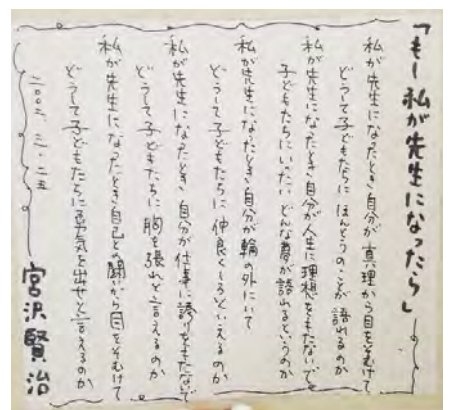 「もし私が先生になったら」
私が先生になったとき 自分が真理から目をそむけて
どうして子どもたちに ほんとうのことが語れるのか
私が先生になったとき 自分が人生に理想をもたないで
子どもたちにいったい どんな夢が語れるというのか
私が先生になったとき 自分が輪の外にいて
どうして子どもたちに 仲良くしろといえるのか
私が先生になったとき 自分が仕事に誇りをもたないで
どうして子どもたちに 胸を張れと言えるのか
私が先生になったとき 自己との闘いから目をそむけて
どうして子どもたちに勇気を出せと言えるのか
宮沢賢治